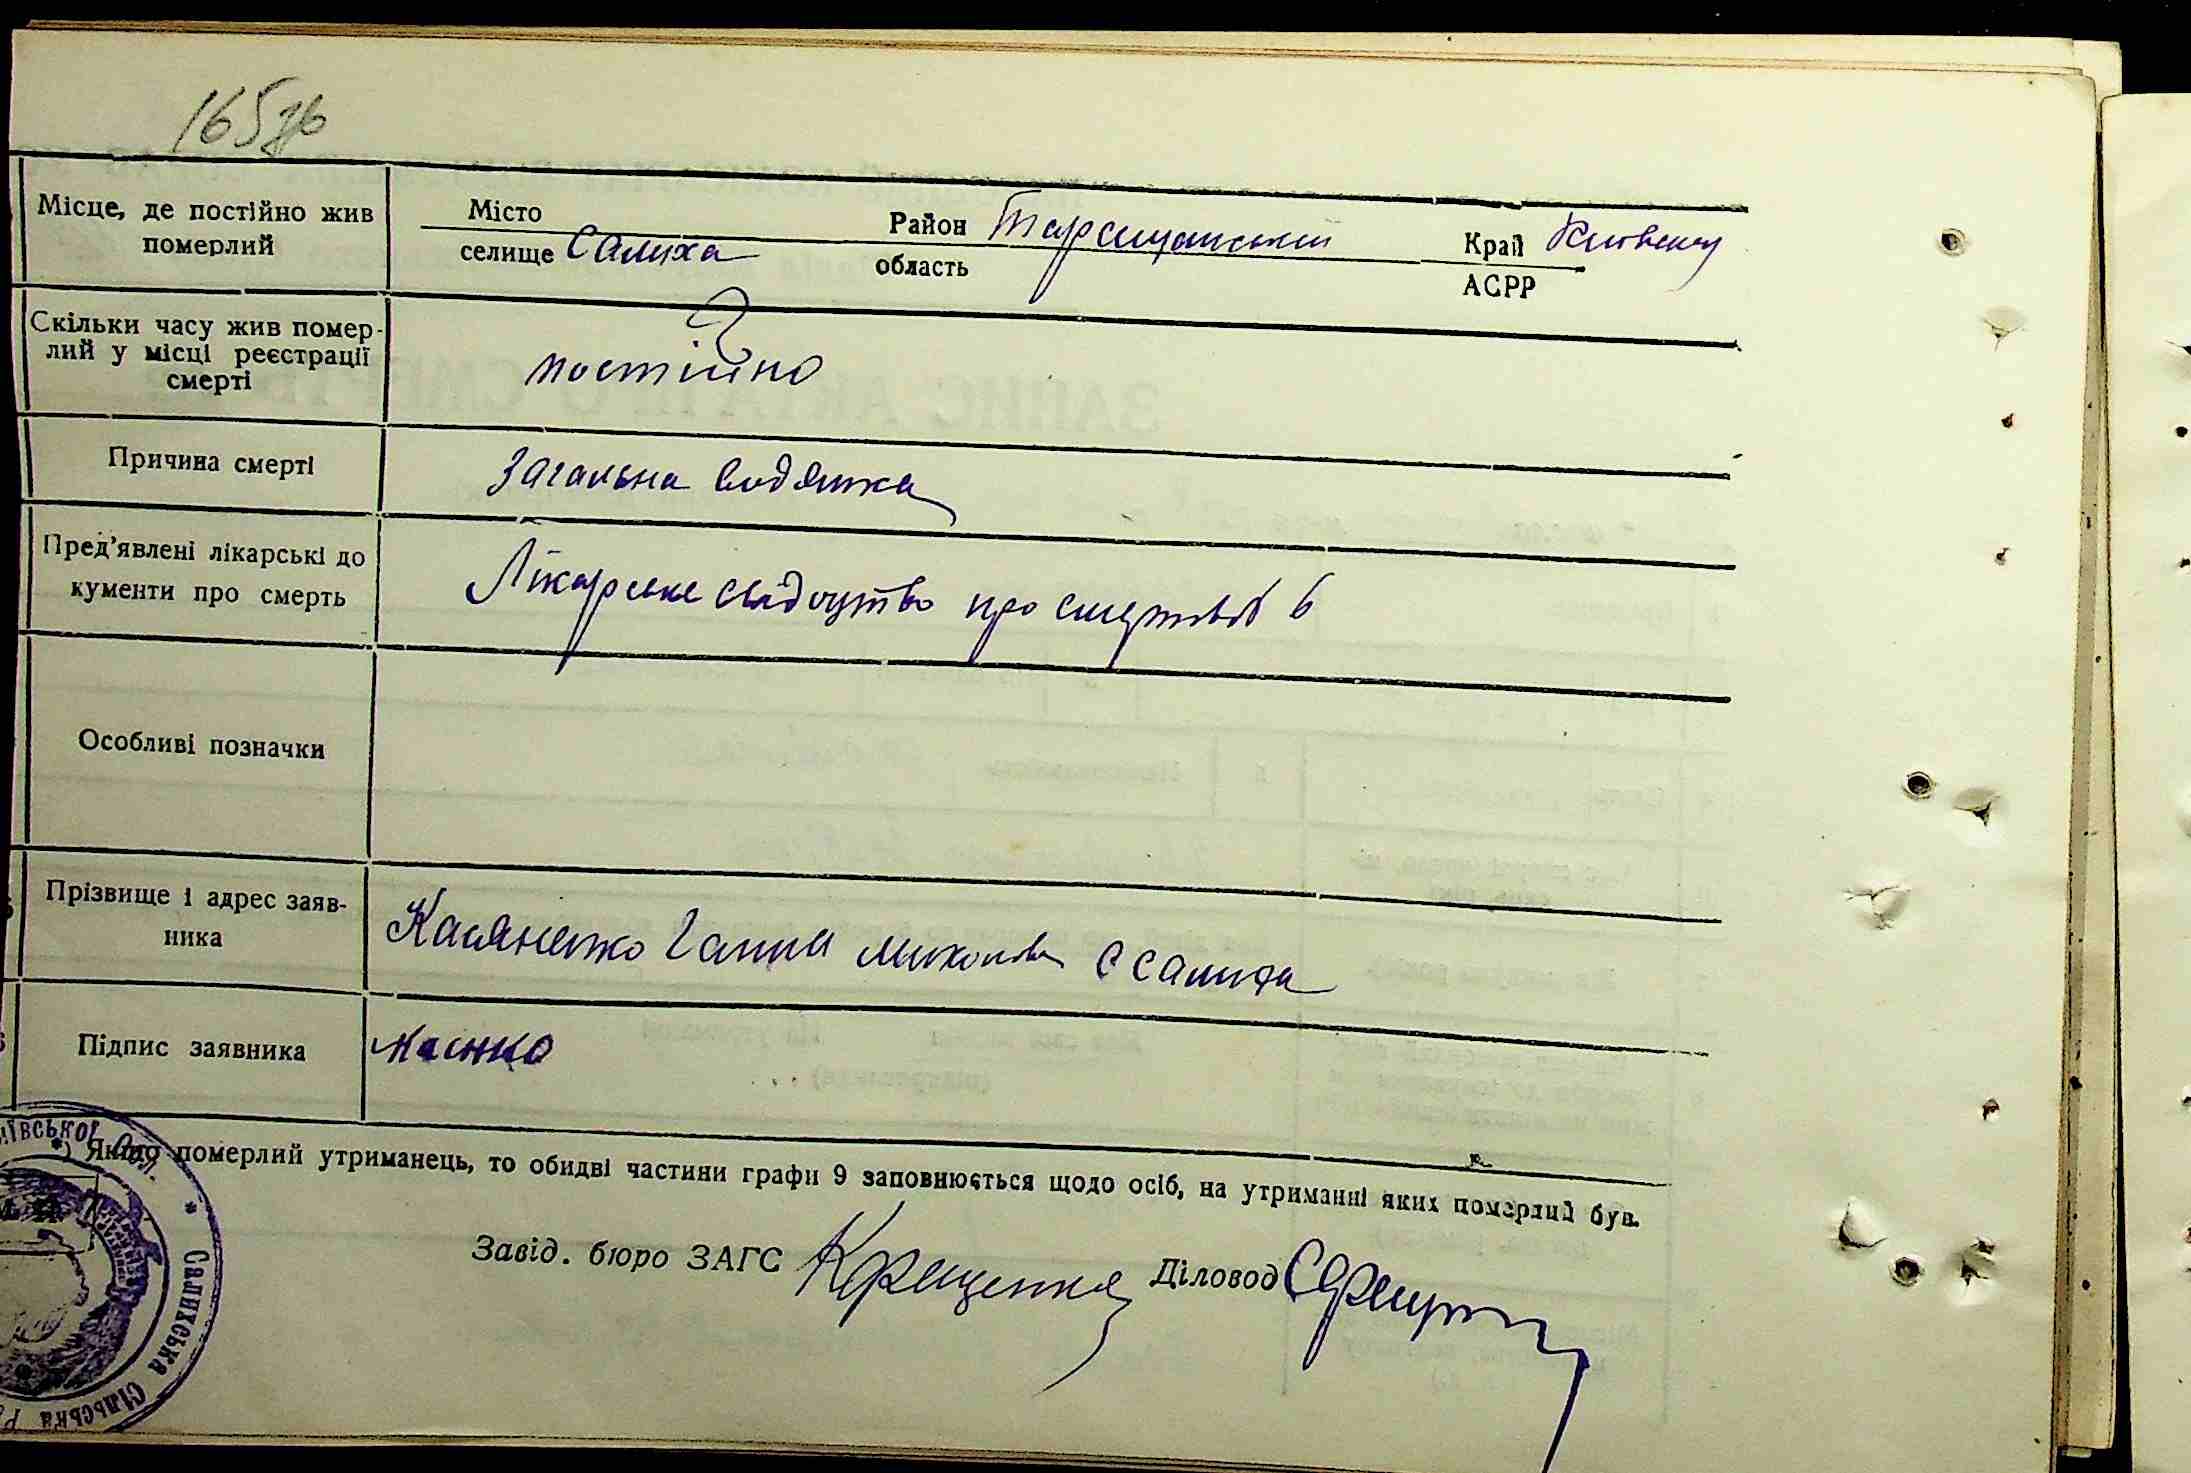 165зв
Місце, де постійно жив
померлий
Місто
селище Салиха
Район Таращанський
область
Край Київська
АСРР
Скільки часу жив помер-
лий у місці реєстрації
смерті
постійно
Причина смерті
Загальна водянка
Пред'явлені лікарські до
кументи про смерть
Лікарське свідоцтво про смерть № 6
Особливі позначки
Прізвище і адрес заяв-
ника
Касяненко Ганна с Салиха
Підпис заявника
*) Якщо померлий утриманець, то обидві частини графи 9 заповнюється щодо осіб, на утриманні яких померлий був.
Завід. бюро ЗАГС Крещенко Діловод
ївської обл. * Салихська Сільська Р